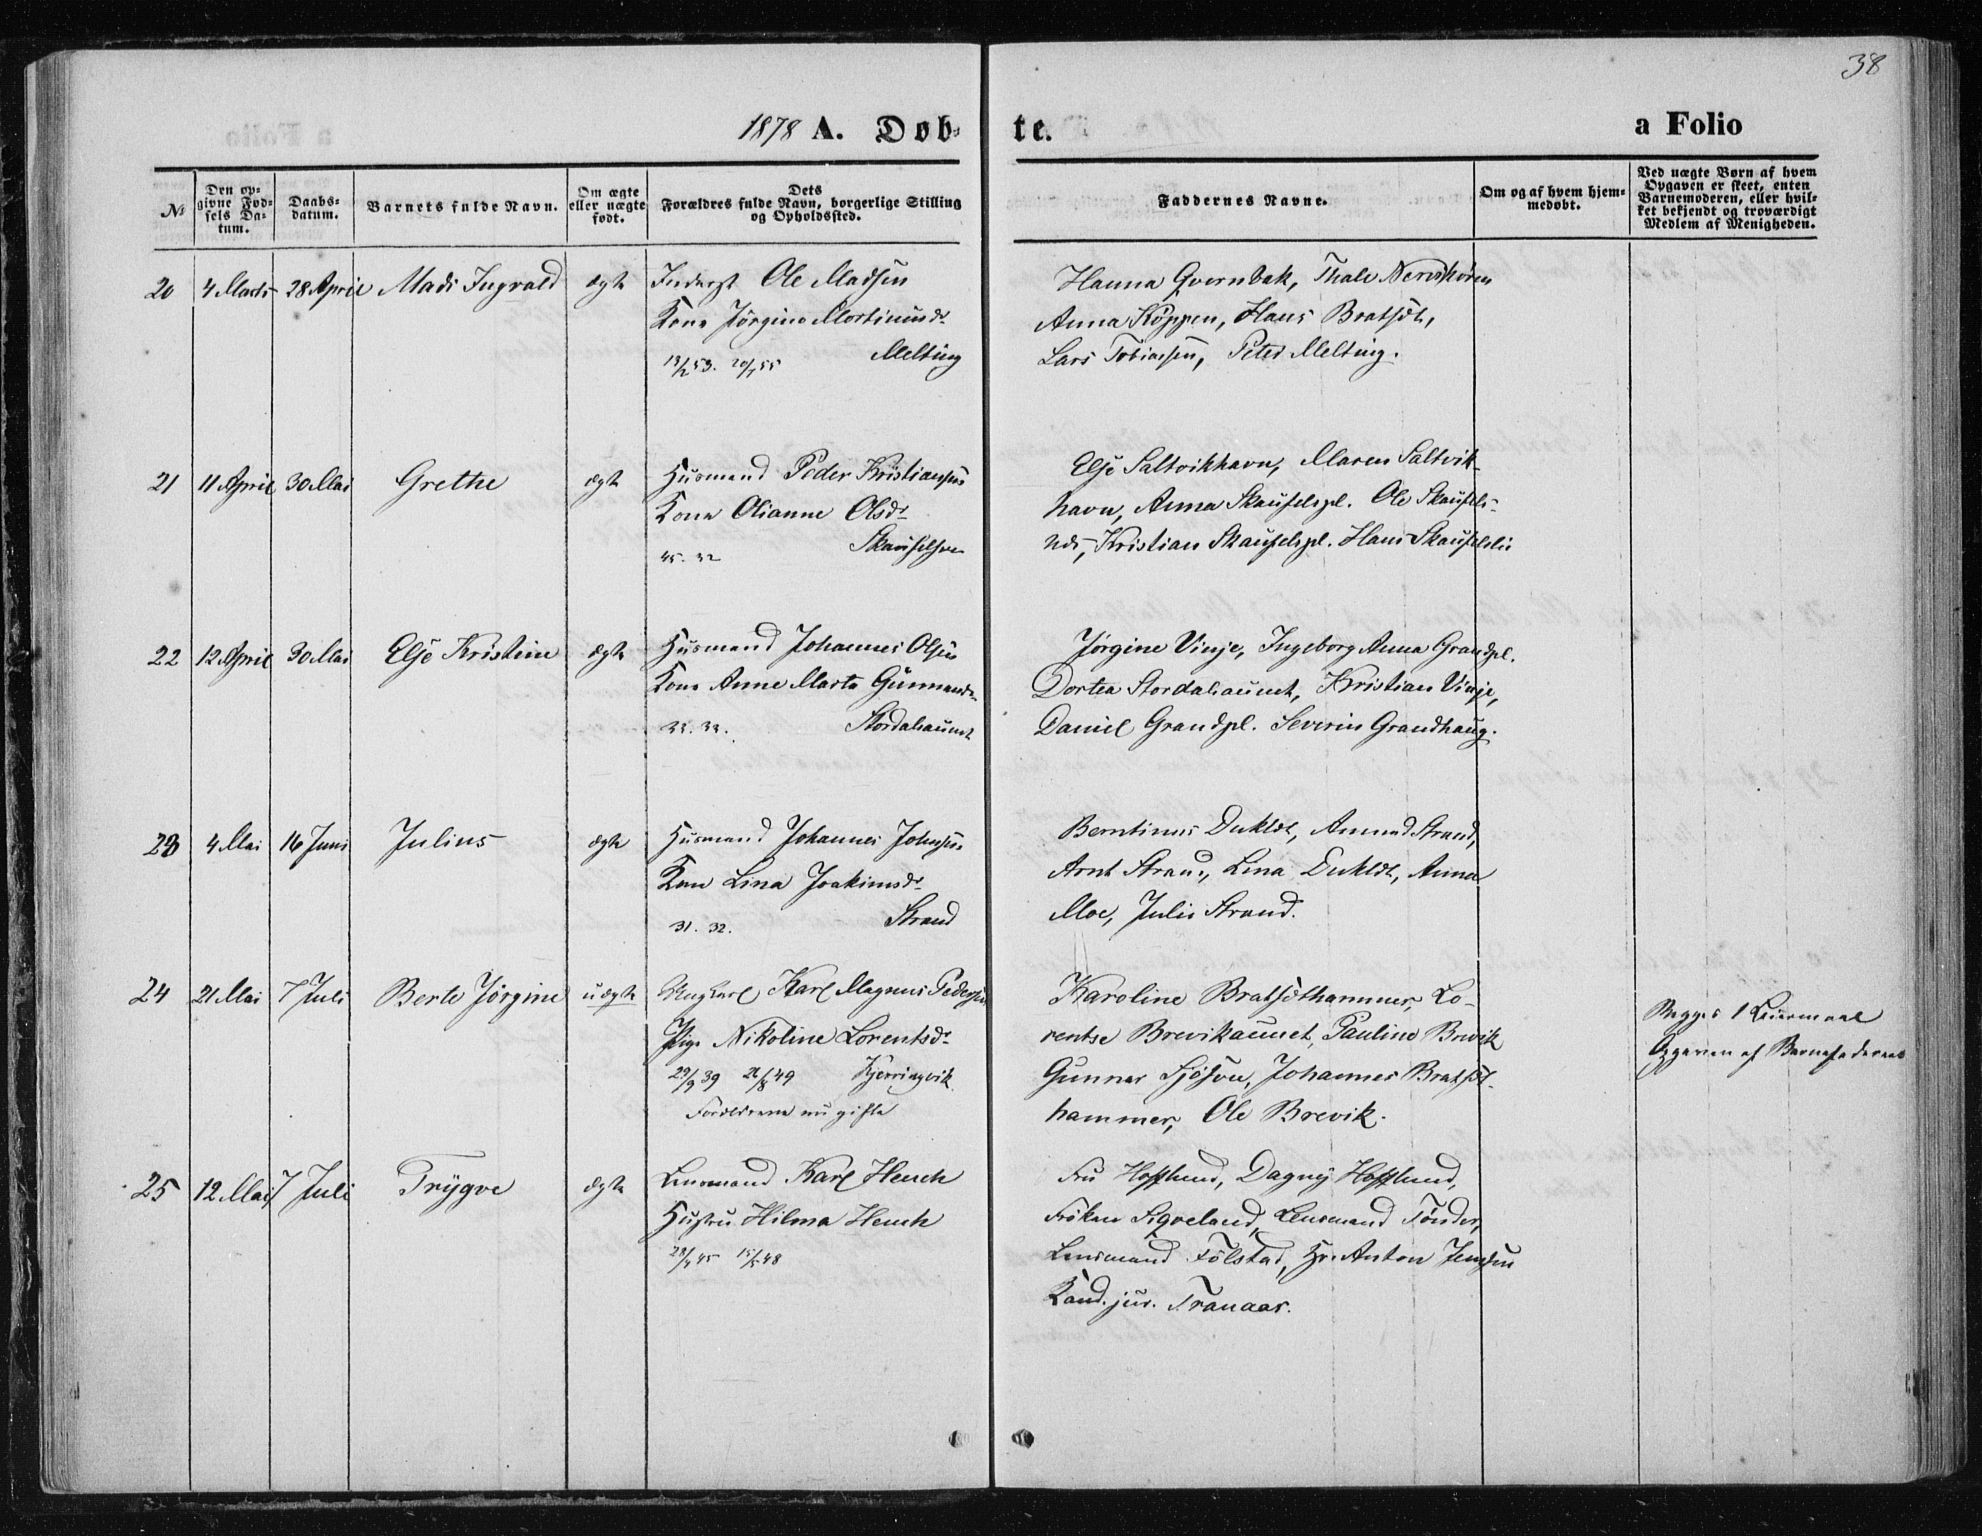 38
1878 A. Døb-
te.
a Folio
№
Den op-
givne Fød-
sels Da-
tum.
Daabs-
datum.
Barnets fulde Navn.
Om ægte
eller uægte
født.
Dets
Forældres fulde Navn, borgerlige Stilling
og Opholdssted.
Faddernes Navne.
Om og af hvem hjem-
medøbt.
Ved uægte Børn af hvem
Opgaven er skeet, enten
Barnemoderen, eller hvil-
ket bekjendt og troværdigt
Medlem af Menigheden.
20 4 Marts 28 April Mads Ingvald ægte
Inderst Ole Madsen
Kone Jørgine Mortinusdr
Melting
Hanna Qvernbak, Thale
Anna Köppen, Hans Bratsöt,
Lars Tobiassen, Peter Melting.
21 11 April 30 Mai Grethe ægte
Husmand Peder Kristiansen
Kone Olianne Olsdr
45. 32
Else Saltvikhavn, Maren Saltvik-
havn, Anna Skaufelspl. Ole Skaufels-
Kristian Skaufelspl. Hans
22 12 April 30 Mai Else Kristine ægte
Husmand Johannes Olsen
Kone Anne Marta
33. 33. Stordalsaunet
Jørgine Vinje, Ingeborg Anna Grandpl.
Dortea Stordalsaunet, Kristian Vinje,
Daniel Grandpl. Severin Grandhaug.
23 4 Mai 16 Juni Julius ægte
Husmand Johannes Johnsen
Kone Lina Joakimsdr
31. 32. Strand
Berntinus Amund Strand,
Arnt Strand, Lina Anna
Moe, Julie Strand.
24 21 Mai 7 Juli Berte Jørgine uægte
Ungkarl Karl Magnus Pedersen
Pige Nikoline Lorentsdr
29/9 39 26/8 49 Kjerringvik
Forældrene nu gifte
Karoline Bratsöthammer, Lo-
rentse Brevikaunet, Pauline Brevik
Gunner Johannes Bratsöt-
hammer, Ole Brevik.
Begges 1 Leiermaal
Opgaven af Barnefaderen
25 12 Mai 7 Juli Trygve ægte
Lensmand Karl Hench
Hustru Hilma Hench
15/5 48
Fru Hofflund, Dagny Hofflund,
Frøken Siqveland, Lensmand Tönder,
Lensmand Fölstad, Hr. Anton Jenssen
Kand. jur. Tranaas.